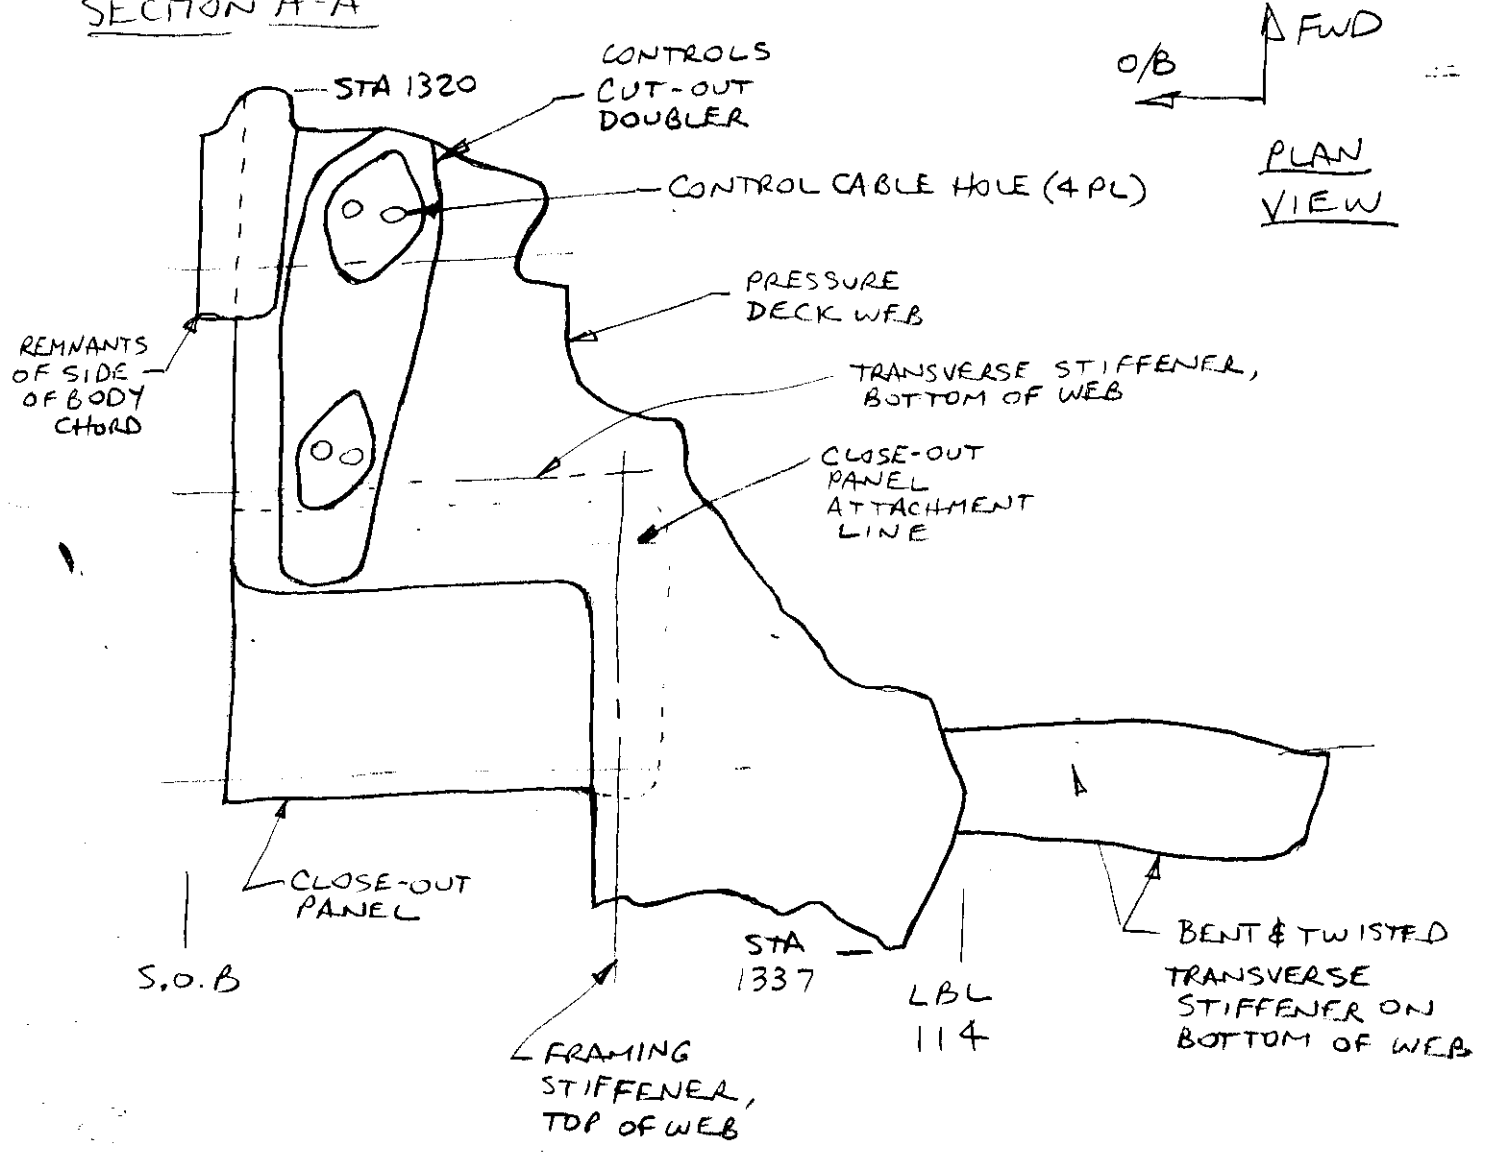 SECTION A-A
FWD
O/B
PLAN
VIEW
STA 1320
CONTROLS
CUT-OUT
DOUBLER
CONTROL CABLE HOLE (4 PL)
PRESSURE
DECK WEB
REMNANTS
OF SIDE
OF BODY
CHORD
TRANSVERSE STIFFENER,
BOTTOM OF WEB
CLOSE-OUT
PANEL
ATTACHMENT
LINE
CLOSE-OUT
PANEL
S.O.B
STA
1337
LBL
114
BENT & TWISTED
TRANSVERSE
STIFFENER ON
BOTTOM OF WEB
FRAMING
STIFFENER,
TOP OF WEB